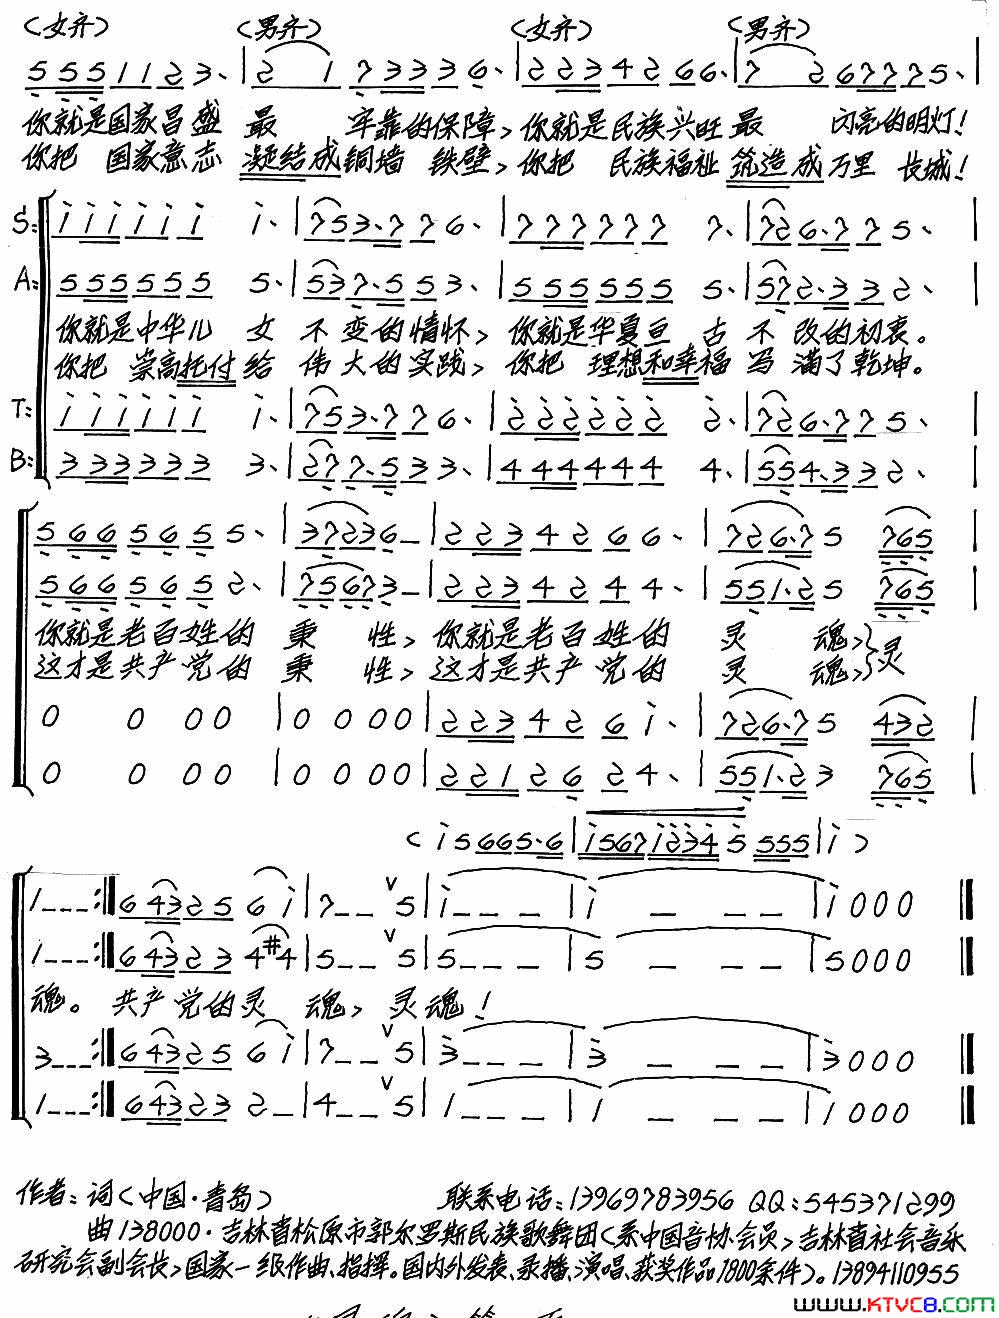 (女齐) (男齐) (女齐) (男齐)
5 5 5 1 1 2 3、 | 2 1 7 3 3 3 6、 | 2 2 3 4 2 6 6、 | 7 2 6 7 7 7 5、 |
你就是国家昌盛 最 牢靠的保障, 你就是民族兴旺 最 闪亮的明灯!
你把 国家意志 凝结成铜墙 铁壁, 你把 民族福祉 筑造成万里 长城!
S: i i i i i i i、 | 7 5 3、7 7 6、 | 7 7 7 7 7 7 7、 | 7 2 6、7 7 5、 |
A: 5 5 5 5 5 5 5、 | 5 3 7、5 5 3、 | 5 5 5 5 5 5 5、 | 5 7 2、3 3 2、 |
你就是中华儿 女 不 变的情怀, 你就是华夏亘 古 不 改的初衷。
你把 崇高托付 给 伟 大的实践, 你把 理想和幸福 写 满了乾坤。
T: i i i i i i i、 | 7 5 3、7 7 6、 | 2 2 2 2 2 2 2、 | 7 2 6、7 7 5、 |
B: 3 3 3 3 3 3 3、 | 2 7 7、5 3 3、 | 4 4 4 4 4 4 4、 | 5 5 4、3 3 2、 |
5 6 6 5 6 5 5、 | 3 7 2 3 6 – | 2 2 3 4 2 6 6、 | 7 2 6、7 5 7 6 5 |
5 6 6 5 6 5 2、 | 7 5 6 7 3 – | 2 2 3 4 2 4 4、 | 5 5 1、2 5 7 6 5 |
你就是老百姓的 秉 性, 你就是老百姓的 灵 魂,
这才是共产党的 秉 性, 这才是共产党的 灵 魂, } 灵
0 0 0 0 | 0 0 0 0 | 2 2 3 4 2 6 i、 | 7 2 6、7 5 4 3 2 |
0 0 0 0 | 0 0 0 0 | 2 2 1 2 6 2 4、 | 5 5 1、2 3 7 6 5 |
( i 5 6 6 5、6 | i 5 6 7 i 2 3 4 5 5 5 5 | i )
1 – – – :‖ 6 4 3 2 5 6 i | 7 – – ∨ 5 | i – – – | i – – – | i 0 0 0 ‖
1 – – – :‖ 6 4 3 2 3 4 #4 | 5 – – ∨ 5 | 5 – – – | 5 – – – | 5 0 0 0 ‖
魂。 共产党的灵 魂, 灵魂!
3 – – – :‖ 6 4 3 2 5 6 i | 7 – – ∨ 5 | 3 – – – | 3 – – – | 3 0 0 0 ‖
1 – – – :‖ 6 4 3 2 3 2 – | 4 – – ∨ 5 | 1 – – – | 1 – – – | 1 0 0 0 ‖
作者: 词(中国·青岛) 联系电话: 13969783956 QQ: 545371299
曲 138000·吉林省松原市郭尔罗斯民族歌舞团(系中国音协会员,吉林省社会音乐
研究会副会长,国家一级作曲、指挥。国内外发表、录播、演唱、获奖作品1800余件)。13894110955
www.KTVC8.com